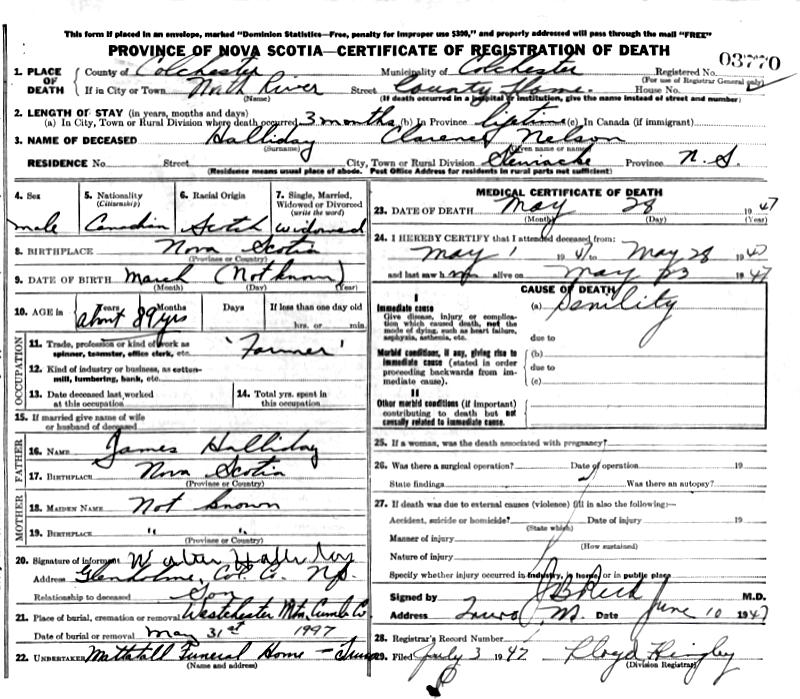 This form if placed in an envelope, marked "Dominion Statistics—Free, penalty for improper use $300," and properly addressed will pass through the mail "FREE"
PROVINCE OF NOVA SCOTIA—CERTIFICATE OF REGISTRATION OF DEATH
03770
1. PLACE OF DEATH County of Colchester Municipality of Colchester Registered No. (For use of Registrar General only)
If in City or Town North River (Name) Street County Home House No.
(If death occurred in a hospital or institution, give the name instead of street and number)
2. LENGTH OF STAY (in years, months and days)
(a) In City, Town or Rural Division where death occurred 3 months (b) In Province lifetime (c) In Canada (if immigrant)
3. NAME OF DECEASED Halliday Clarence Nelson
(Surname) (Given name or names)
RESIDENCE No. Street City, Town or Rural Division Stewiacke Province N. S.
(Residence means usual place of abode. Post Office Address for residents in rural parts not sufficient)
4. Sex male
5. Nationality (Citizenship) Canadian
6. Racial Origin Scotch
7. Single, Married, Widowed or Divorced (write the word) widowed
8. BIRTHPLACE Nova Scotia
(Province or Country)
9. DATE OF BIRTH March (Not known)
(Month) (Day) (Year)
10. AGE in Years Months Days If less than one day old
about 89 yrs hrs. or min.
OCCUPATION
11. Trade, profession or kind of work as spinner, teamster, office clerk, etc. 'Farmer'
12. Kind of industry or business, as cotton-mill, lumbering, bank, etc.
13. Date deceased last worked at this occupation
14. Total yrs. spent in this occupation
15. If married give name of wife or husband of deceased
FATHER
16. NAME James Halliday
17. BIRTHPLACE Nova Scotia
(Province or Country)
MOTHER
18. MAIDEN NAME Not known
19. BIRTHPLACE " "
(Province or Country)
20. Signature of informant Walter Halliday
Address Glenholme, Col. Co. N.S.
Relationship to deceased Son
21. Place of burial, cremation or removal Westchester Mtn. Cumb Co
Date of burial or removal May 31st 1947
22. UNDERTAKER Mattatall Funeral Home — Truro
(Name and address)
MEDICAL CERTIFICATE OF DEATH
23. DATE OF DEATH May 28 1947
(Month) (Day) (Year)
24. I HEREBY CERTIFY that I attended deceased from:
May 1 1947 to May 28 1947
and last saw him alive on May 23 1947
CAUSE OF DEATH
I
Immediate cause (a) Senility
Give disease, injury or complication which caused death, not the mode of dying, such as heart failure, asphyxia, asthenia, etc.
due to
Morbid conditions, if any, giving rise to immediate cause (stated in order proceeding backwards from immediate cause).
(b)
due to
(c)
II
Other morbid conditions (if important) contributing to death but not causally related to immediate cause.
25. If a woman, was the death associated with pregnancy?
26. Was there a surgical operation? Date of operation 19
State findings Was there an autopsy?
27. If death was due to external causes (violence) fill in also the following:—
Accident, suicide or homicide? Date of injury 19
(State which)
Manner of injury
(How sustained)
Nature of injury
Specify whether injury occurred in industry, in home, or in public place
Signed by J B Reid M.D.
Address Truro N.S. June 10 1947
28. Registrar's Record Number
29. Filed July 3 1947 Lloyd Hingley
(Division Registrar)